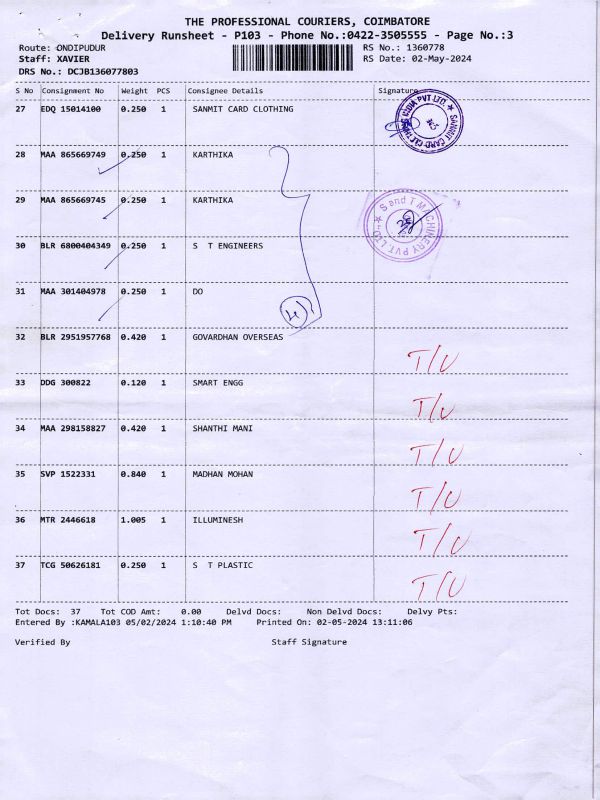 THE PROFESSIONAL COURIERS, COIMBATORE
Delivery Runsheet - P103 - Phone No.:0422-3505555 - Page No.:3
Route: ONDIPUDUR RS No.: 1360778
Staff: XAVIER RS Date: 02-May-2024
DRS No.: DCJB136077803
S No Consignment No Weight PCS Consignee Details Signature
27 EDQ 15014100 0.250 1 SANMIT CARD CLOTHING
SANMIT CARD CLOTHING INDIA PVT LTD.
28 MAA 865669749 0.250 1 KARTHIKA
29 MAA 865669745 0.250 1 KARTHIKA
S and T MACHINERY PVT. LTD.
30 BLR 6800404349 0.250 1 S T ENGINEERS
31 MAA 301404978 0.250 1 DO
4
32 BLR 2951957768 0.420 1 GOVARDHAN OVERSEAS T/U
33 DDG 300822 0.120 1 SMART ENGG T/U
34 MAA 298158827 0.420 1 SHANTHI MANI T/U
35 SVP 1522331 0.840 1 MADHAN MOHAN T/U
36 MTR 2446618 1.005 1 ILLUMINESH T/U
37 TCG 50626181 0.250 1 S T PLASTIC T/U
Tot Docs: 37 Tot COD Amt: 0.00 Delvd Docs: Non Delvd Docs: Delvy Pts:
Entered By :KAMALA103 05/02/2024 1:10:40 PM Printed On: 02-05-2024 13:11:06
Verified By Staff Signature